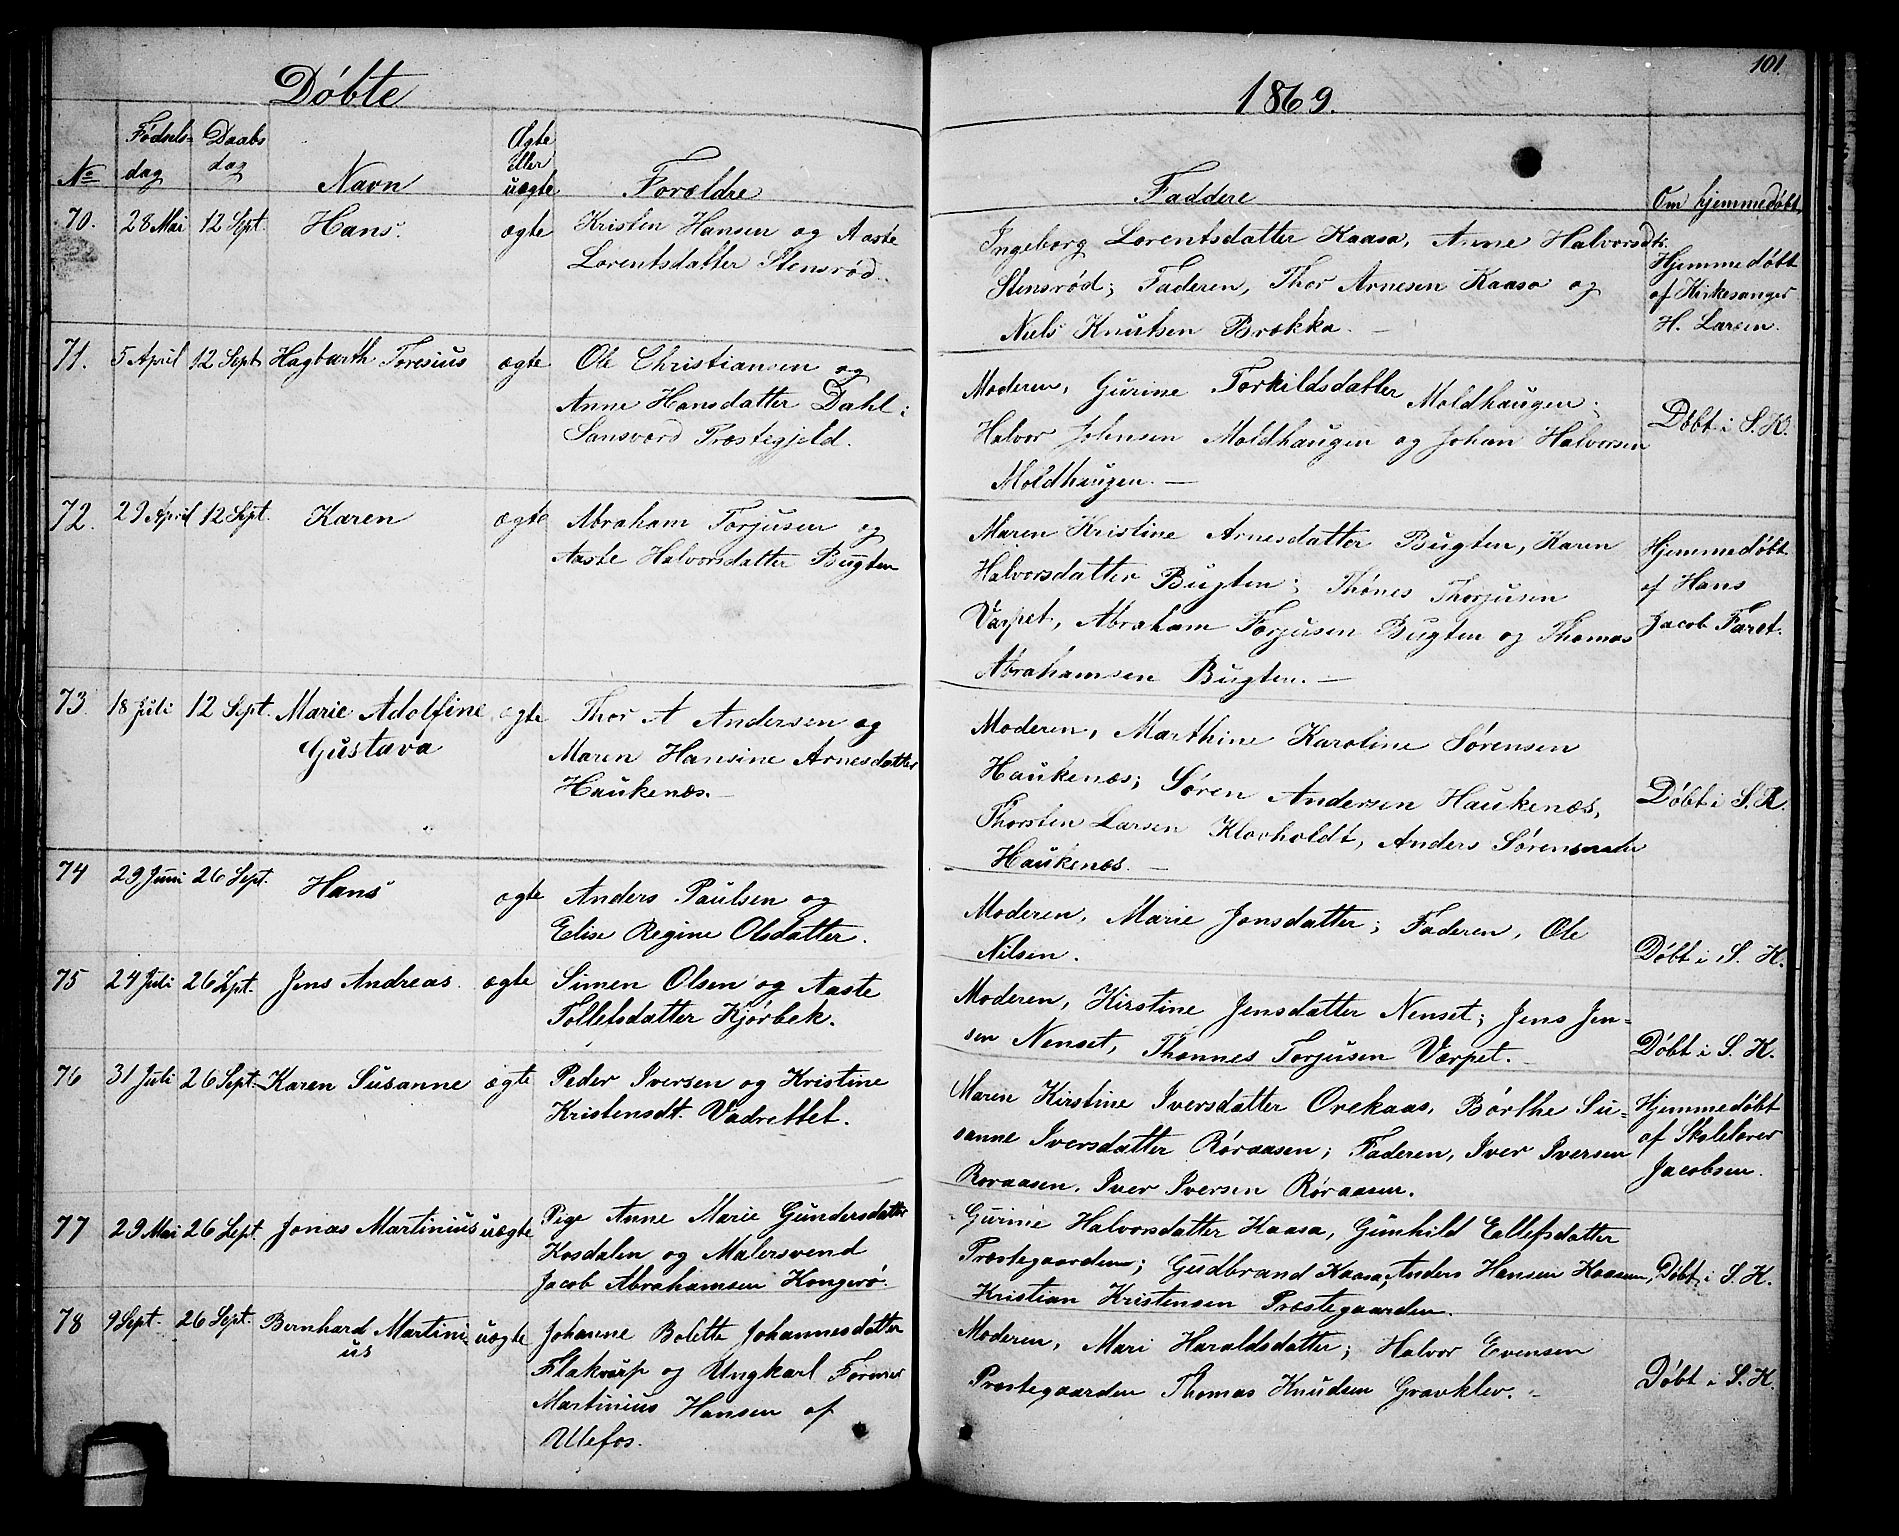 Døbte
No
Fødsels-
dag
Daabs
dag
Navn
Ægte
Eller
uægte
Forældre
70. 28 Mai 12 Sept. Hans. ægte Kristen Hansen og Aaste
Lorentsdatter Stensrød.
71. 5 April 12 Sept. Hagbarth Toresius ægte Ole Christiansen og
Anne Hansdatter Dahl i
Sansværd Præstegjeld.
72. 29 April 12 Sept. Karen ægte Abraham Torjusen og
Aaste Halvorsdatter Bugten
73. 18 Juli 12 Sept. Marie Adolfine ægte Thor A Andersen og
Gustava Maren Hansine Arnesdatter
Haukenæs.
74 29 Juni 26 Sept. Hans ægte Anders Paulsen og
Elise Regine Olsdatter.
75 24 Juli 26 Sept. Jens Andreas. ægte Simen Olsen og Aaste
Tollefsdatter Kjørbek.
76 31 Juli 26 Sept. Karen Susanne ægte Peder Iversen og Kristine
Kristensdt. Vadrettet.
77 29 Mai 26 Sept. Jonas Martinius uægte Pige Anne Marie Gundersdatter
Kosdalen og Malersvend
Jacob Abrahamsen Kongerø.
78 9 Sept. 26 Sept. Bernhard Martini- uægte Johanne Bolette Johannesdatter
us Flakvarp og Ungkarl Former
Martinius Hansen af
Ulefos.
101.
1869.
Faddere
Om hjemmedøbt
Ingeborg Lorentsdatter Kaasa, Anne Halvorsdtr.
Stensrød; Faderen, Thor Arnesen Kaasa og
Niels Knutsen Brækka. –
Hjemmedøbt
af Kirkesanger
H. Larsen.
Moderen, Gurine Torkildsdatter Moldhaugen;
Halvor Johnsen Moldhaugen og Johan Halvorsen
Moldhaugen. –
Døbt i S. K.
Maren Kristine Arnesdatter Bugten, Karen
Halvorsdatter Bugten; Thønes Thorjusen
Varpet, Abraham Torjusen Bugten og Thomas
Abrahamsen Bugten. –
Hjemmedøbt
af Hans
Jacob Faret.
Moderen, Marthine Karoline Sørensen
Haukenæs; Søren Andersen Haukenæs,
Thorsten Larsen Klovholdt, Anders Sørensen
Haukenæs. –
Døbt i S. K.
Moderen, Marie Jonsdatter; Faderen, Ole
Nilsen.
Døbt i S. K.
Moderen, Kirstine Jensdatter Nenset; Jens Jen-
sen Nenset, Thønnes Torjusen Varpet. –
Døbt i S. K.
Maren Kirstine Iversdatter Orekaas, Børthe Su-
sanne Iversdatter Røraasen; Faderen, Iver Iversen
Røraasen. Iver Iversen Røraasen.
Hjemmedøbt
af Skolelærer
Jacobsen.
Gurine Halvorsdatter Kaasa, Gunhild Ellefsdatter
Præstegaarden; Gudbrand Kaasa, Anders Hansen Kaasen,
Kristian Kristensen Præstegaarden.
Døbt i S. K.
Moderen, Mari Haraldsdatter; Halvor Evensen
Præstegaarden Thomas Knudsen Gravklev. –
Døbt i S. K.